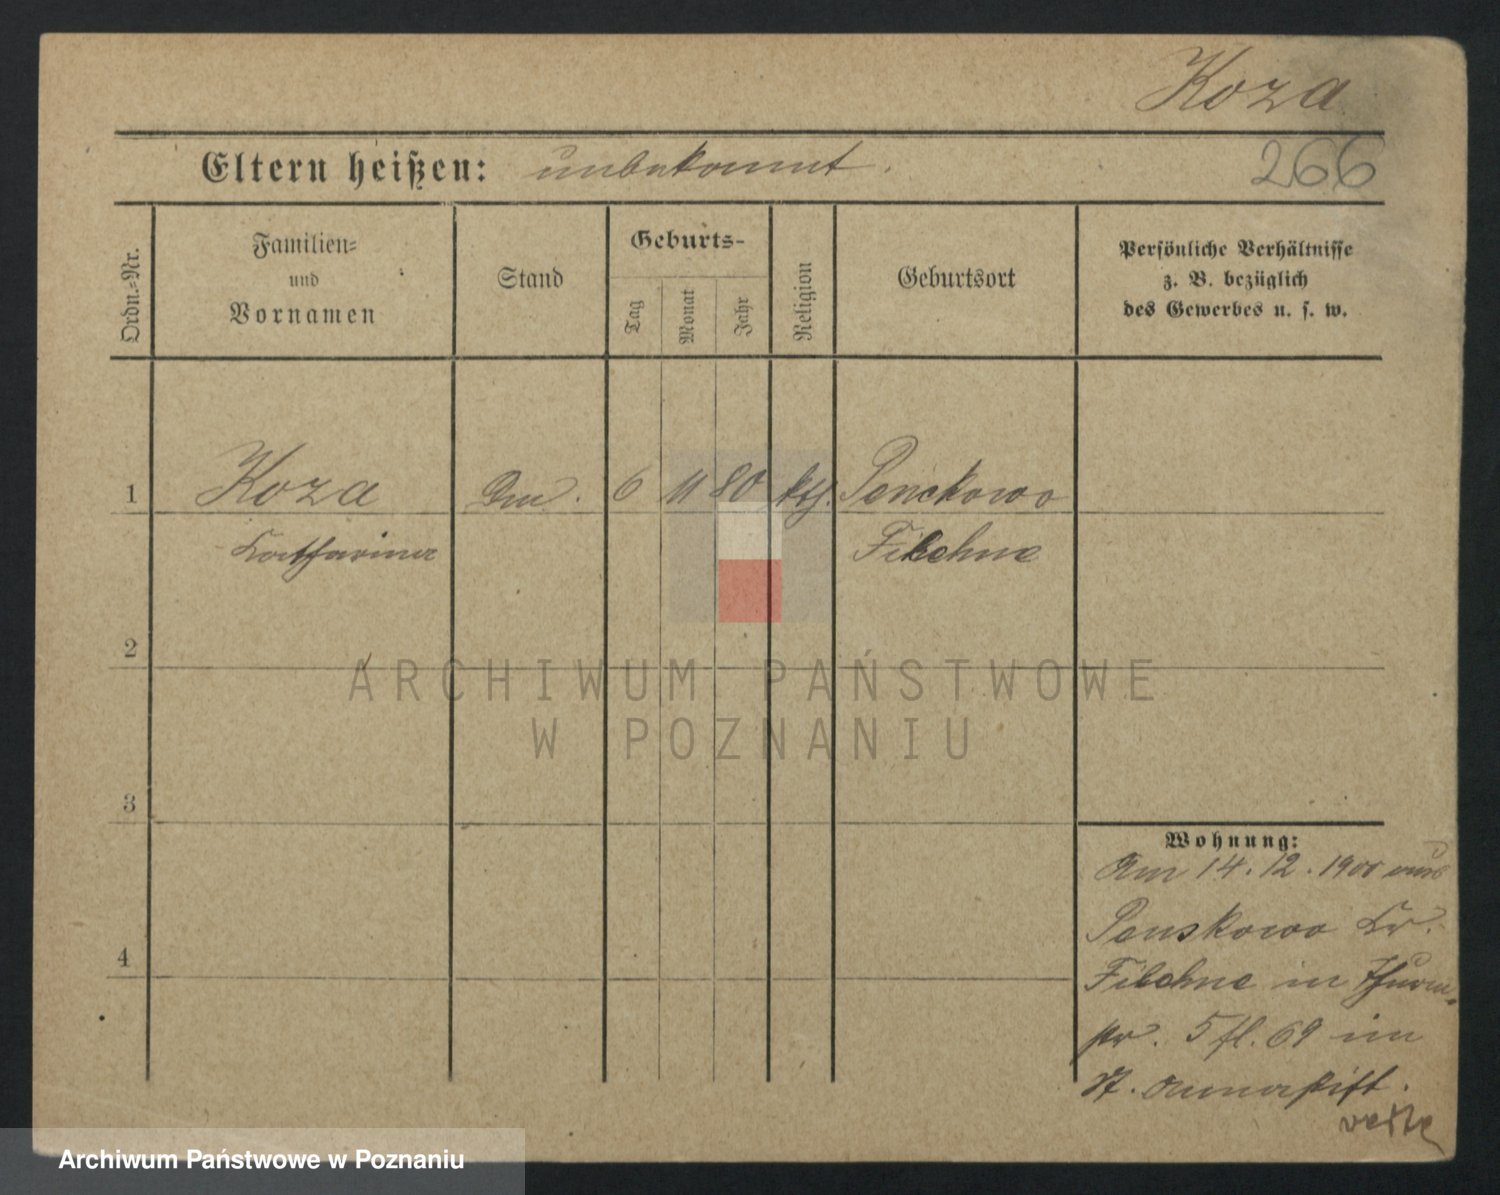 Koza
Eltern heißen: unbekannt.
266
Ordn.-Nr.
Familien- und Vornamen
Stand
Geburts-
Tag
Monat
Jahr
Religion
Geburtsort
Persönliche Verhältnisse
z. B. bezüglich
des Gewerbes u. s. w.
1 Koza 6 11 80 kth. Penckowo
Katharina Filehne
2
3
4
Wohnung:
Am 14. 12. 1900 aus
Penskowo Kr.
Filehne in Thurm-
str. 5 fl. 69 im
St. Annastift.
ARCHIWUM PAŃSTWOWE
W POZNANIU
Archiwum Państwowe w Poznaniu